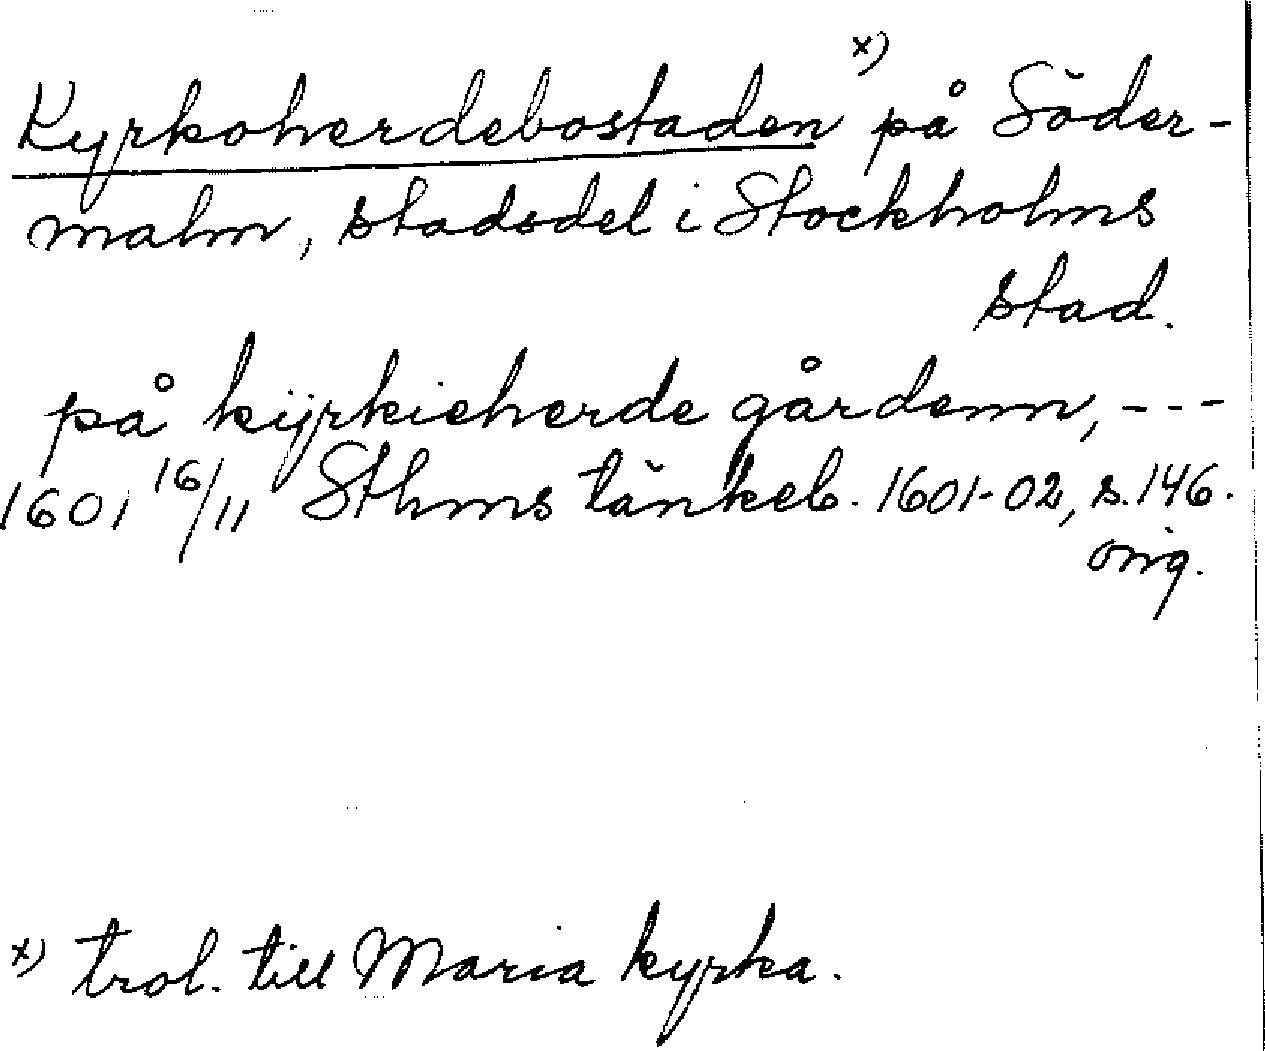 Kyrkoherdebostaden x) på Söder-
malm, stadsdel i Stockholms
stad.
på kÿrkieherde gårdenn, ---
1601 16/11 Sthms tänkeb. 1601-02, s. 146.
orig.
x) trol. till Maria kyrka.